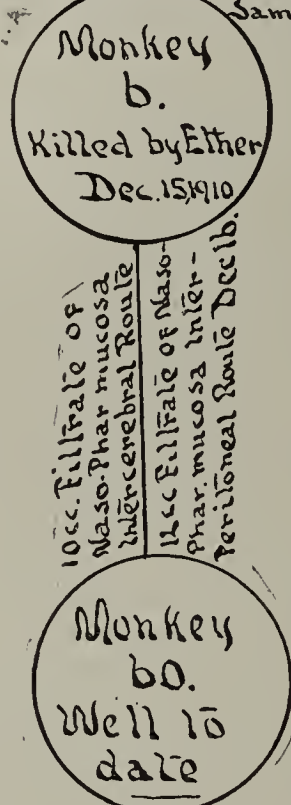 Sam
Monkey
b.
Killed by Ether
Dec. 15, 1910
10cc. Filtrate of
Naso-Phar mucosa
Intercerebral Route
12cc Filtrate of Naso-
Phar. mucosa Inter-
Peritoneal Route Dec 16.
Monkey
b0.
Well to
date